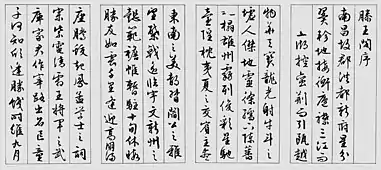 滕王閣序
南昌故郡洪都新府星分
翼軫地接衡廬襟三江而
湖控蠻荊而引甌越
物華天寶龍光射牛斗之
墟人傑地靈徐孺下陳蕃
之榻雄州霧列俊彩星馳
臺隍枕夷夏之交賓主盡
東南之美都督閻公之雅
望棨戟遙臨宇文新州之
懿範襜帷暫駐十旬休暇
勝友如雲千里逢迎高朋滿
座騰蛟起鳳孟學士之詞
宗紫電清霜王將軍之武
庫家君作宰路出名區童
子何知躬逢勝餞時維九月